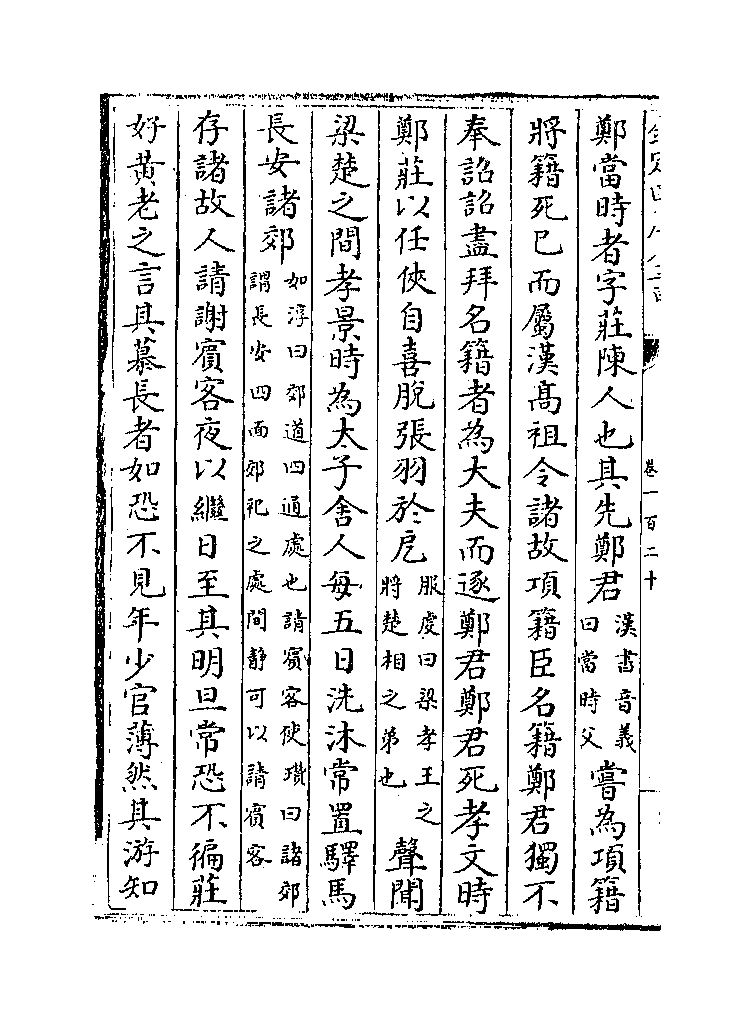 卷一百二十
鄭當時者字莊陳人也其先鄭君漢書音義曰當時父嘗為項籍
將籍死已而屬漢髙祖令諸故項籍臣名籍鄭君獨不
奉詔詔盡拜名籍者為大夫而逐鄭君鄭君死孝文時
鄭莊以任俠自喜脫張羽於戹服虔曰梁孝王之將楚相之弟也聲聞
梁楚之間孝景時為太子舍人每五日洗沐常置驛馬
長安諸郊如淳曰郊道四通處也請賓客便瓚曰諸郊謂長安四面郊祀之處間靜可以請賓客
存諸故人請謝賓客夜以繼日至其明旦常恐不徧莊
好黃老之言其慕長者如恐不見年少官薄然其游知